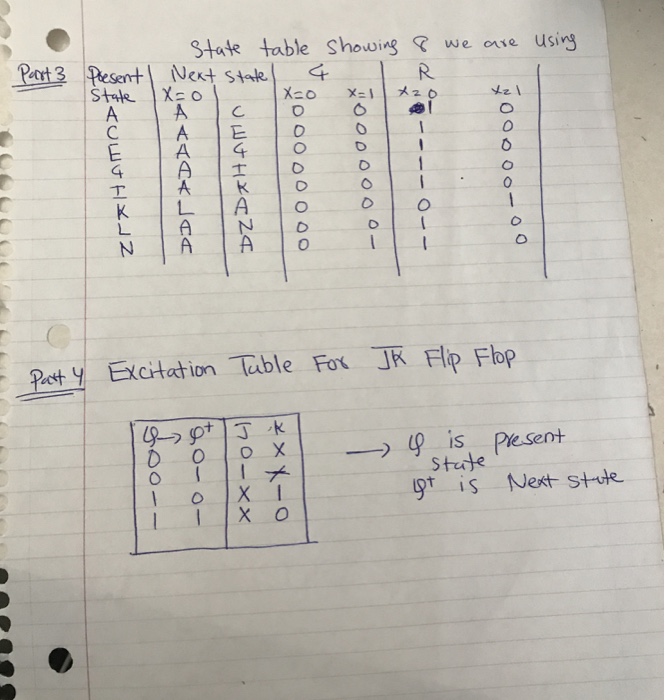 State table showing 8 we are using
Part 3 Present Next state G R
State X=0 X=0 X=1 X=0 X=1
A A C 0 0 1 0
C A E 0 0 1 0
E A G 0 0 1 0
G A I 0 0 1 0
I A K 0 0 1 0
K L A 0 0 0 1
L A N 0 0 1 0
N A A 0 1 1 0
Part 4 Excitation Table For JK Flip Flop
φ → φ+ J K
0 0 0 X
0 1 1 X
1 0 X 1
1 1 X 0
→ φ is present
state
φ+ is Next state